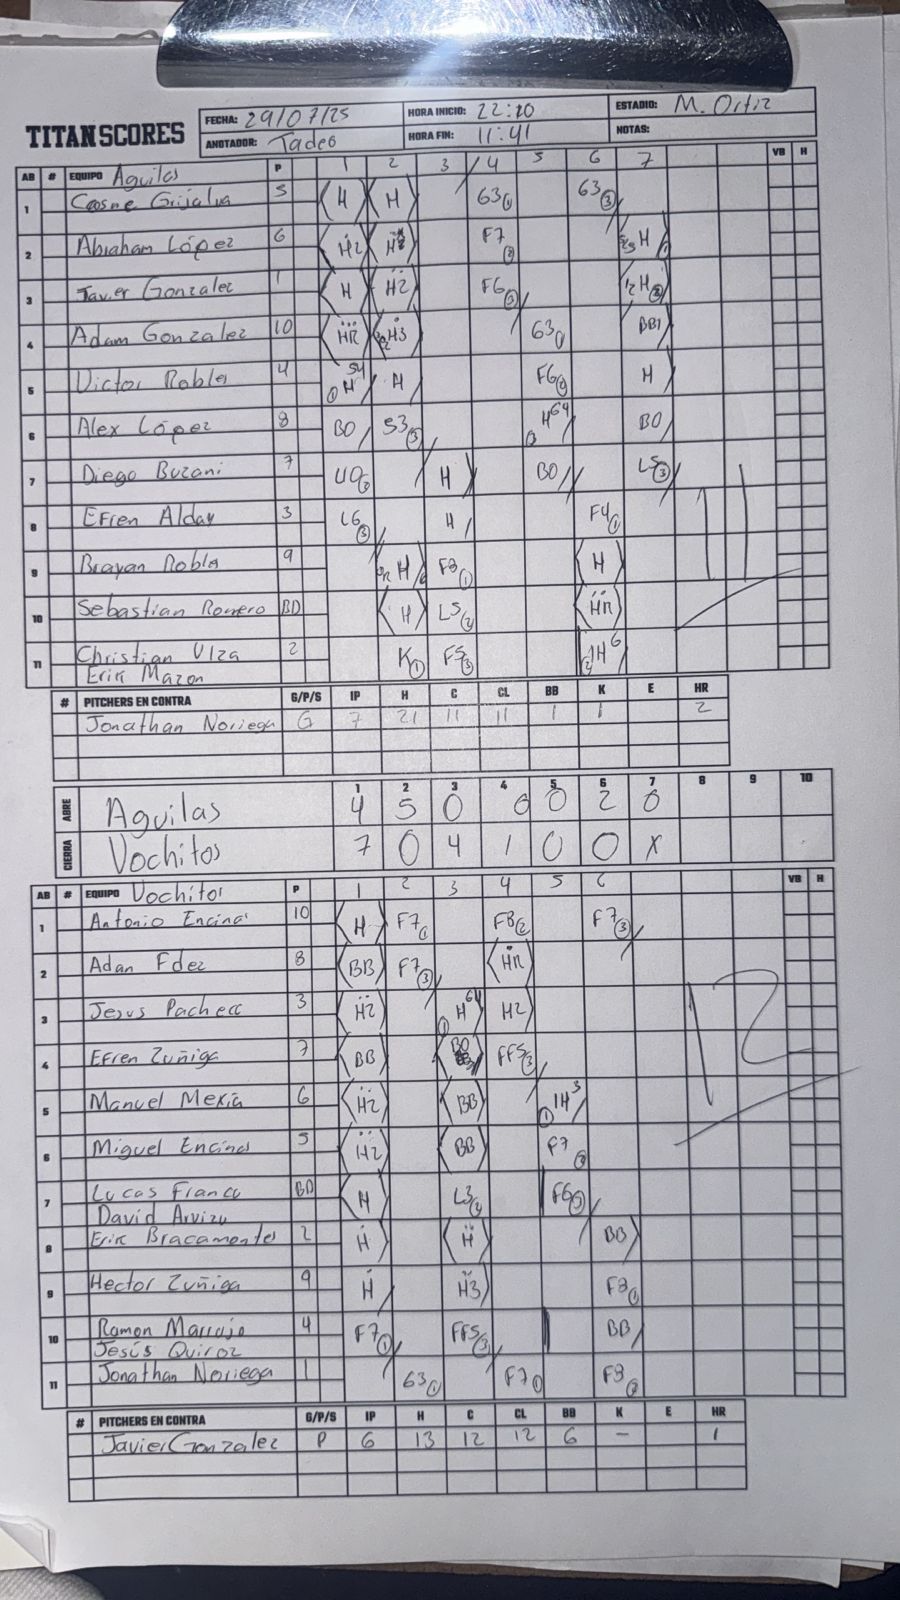 TITAN SCORES
FECHA: 29/07/25 HORA INICIO: 22:20 ESTADIO: M. Ortiz
ANOTADOR: Tadeo HORA FIN: 11:41 NOTAS:
AB # EQUIPO Aguilas P 1 2 3 4 5 6 7 VB H
1 Cosne Grijalva 5 H H 63① 63③
2 Abraham López 6 H2 H F7② H
3 Javier Gonzalez 1 H H2 F6③ H②
4 Adam Gonzalez 10 HR H3 63① BB
5 Victor Robla 4 ① H 54 H F6② H
6 Alex López 8 BO 53③ H64 BO
7 Diego Buzani 7 UO② H BO L5③
8 Efren Alday 3 L6③ H F4①
9 Brayan Robla 9 H F8① H
10 Sebastian Romero BD H L5② HR
11 Christian Ulza 2 K① F5③ ② 1H6
Erik Mazon
11
# PITCHERS EN CONTRA G/P/S IP H C CL BB K E HR
Jonathan Noriega G 7 21 11 11 1 1 2
1 2 3 4 5 6 7 8 9 10
ABRE Aguilas 4 5 0 0 0 2 0
CIERRA Vochitos 7 0 4 1 0 0 X
AB # EQUIPO Vochitos P 1 2 3 4 5 6 VB H
1 Antonio Encinas 10 H F7① F8② F7③
2 Adan Fdez 8 BB F7③ HR
3 Jesus Pachecc 3 H2 ① H64 H2
4 Efren Zuñiga 7 BB BO FF5③
5 Manuel Mexia 6 H2 BB ① 1H3
6 Miguel Encinas 5 H2 BB F7②
7 Lucas Franco BD H L3② F6③
David Arvizu
8 Erik Bracamontes 2 H H BB
9 Hector Zuñiga 9 H H3 F8①
10 Ramon Marrujo 4 F7① FF5③ BB
Jesús Quiroz
11 Jonathan Noriega 1 63① F7① F8②
12
# PITCHERS EN CONTRA G/P/S IP H C CL BB K E HR
Javier Gonzalez P 6 13 12 12 6 – 1